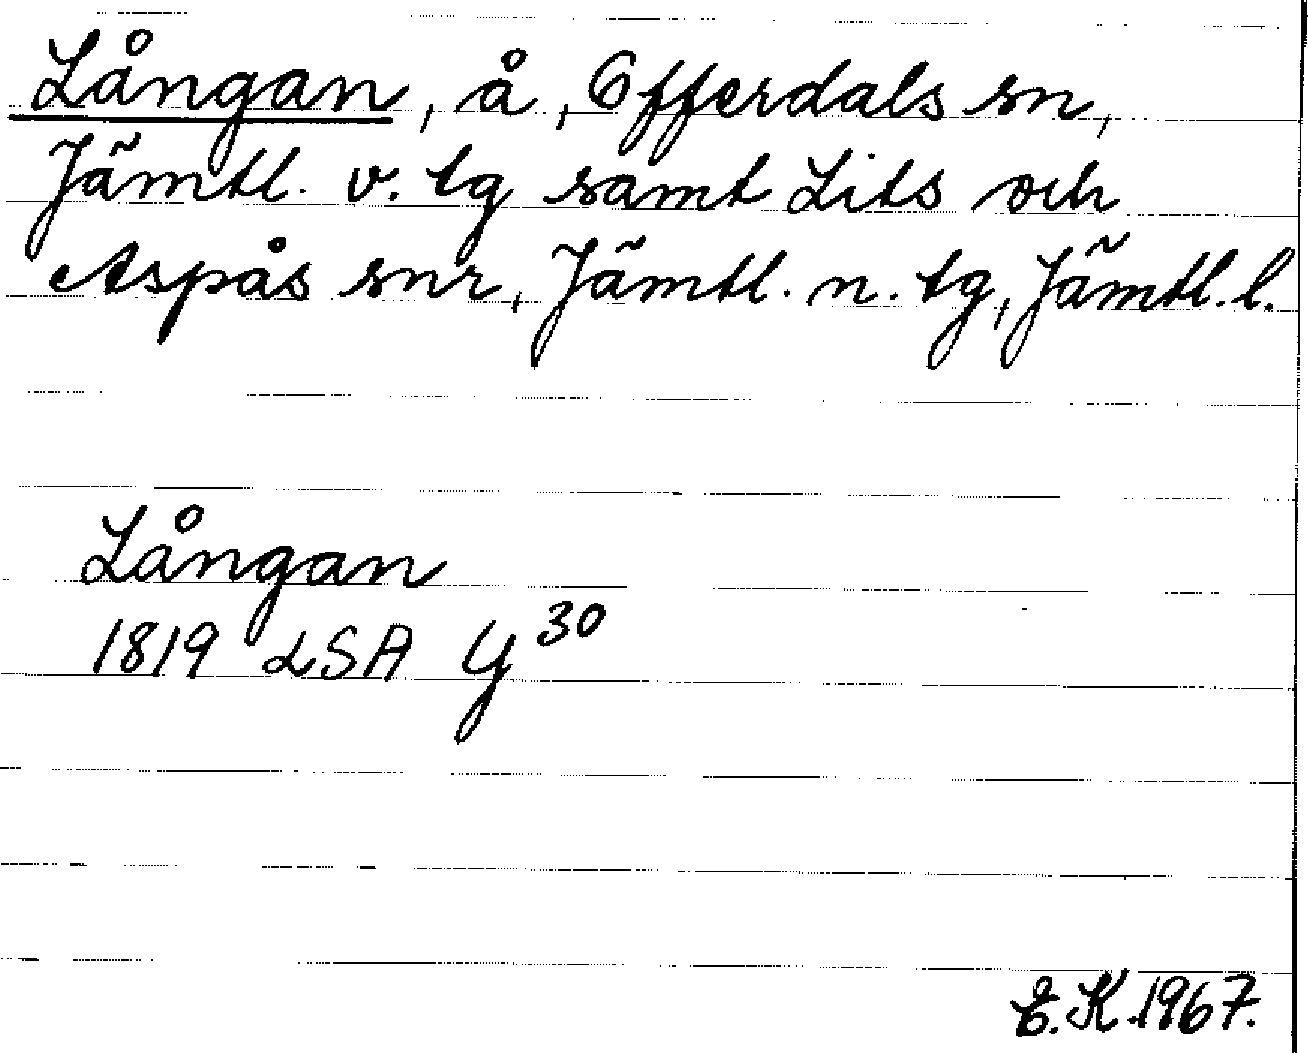 Långan, å, Offerdals sn,
Jämtl. v. tg samt Lits och
Aspås snr, Jämtl. n. tg, Jämtl. l.
Långan
1819 LSA Y 30
E.K. 1967.